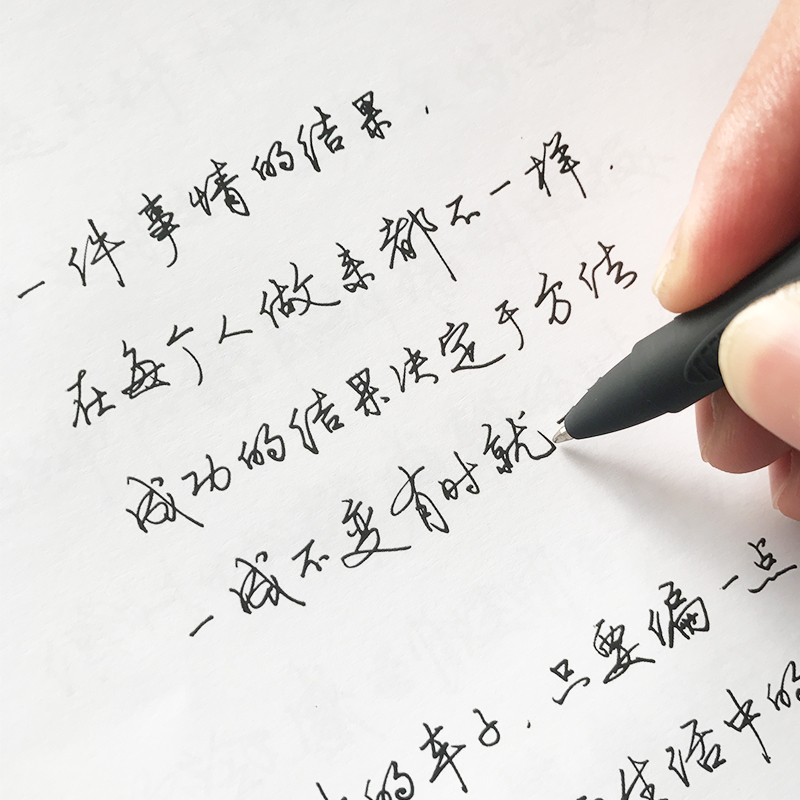 一件事情的结果,
在每个人做来都不一样.
成功的结果决定于方法
一成不变有时就
的车子,只要偏一点
生活中的